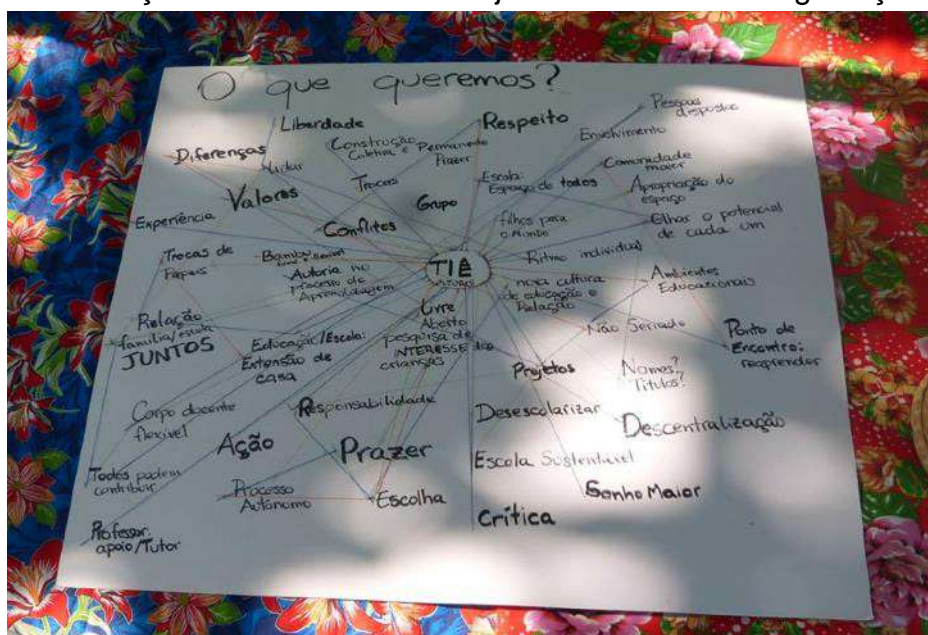 O que queremos?
Liberdade
Diferenças
Construção
Coletiva e Permanente
Prazer
Respeito
Pessoas
dispostas
Envolvimento
Comunidade
maior
Trocas
Valores
Grupo
Escola:
Espaço de todos
Apropriação do
espaço
Experiência
Conflitos
filhos para
o Mundo
Olhar o potencial
de cada um
Trocas de
Papeis
Autoria no
processo de
Aprendizagem
TIÊ
Ritmo individual
nova cultura
de educação e
Relação
Ambientes
Educacionais
Relação
família/escola
JUNTOS
Educação/Escola:
Extensão de
casa
Livre
Aberto
pesquisa de
INTERESSE das
crianças
Não Seriado
Ponto de
Encontro:
reaprender
Projetos
Nomes?
Títulos?
Corpo docente
flexível
Responsabilidade
Desescolarizar
Descentralização
Ação
Prazer
Escola Sustentável
Todos podem
contribuir
Processo
Autônomo
Escolha
Sonho Maior
Crítica
Professor:
apoio/Tutor